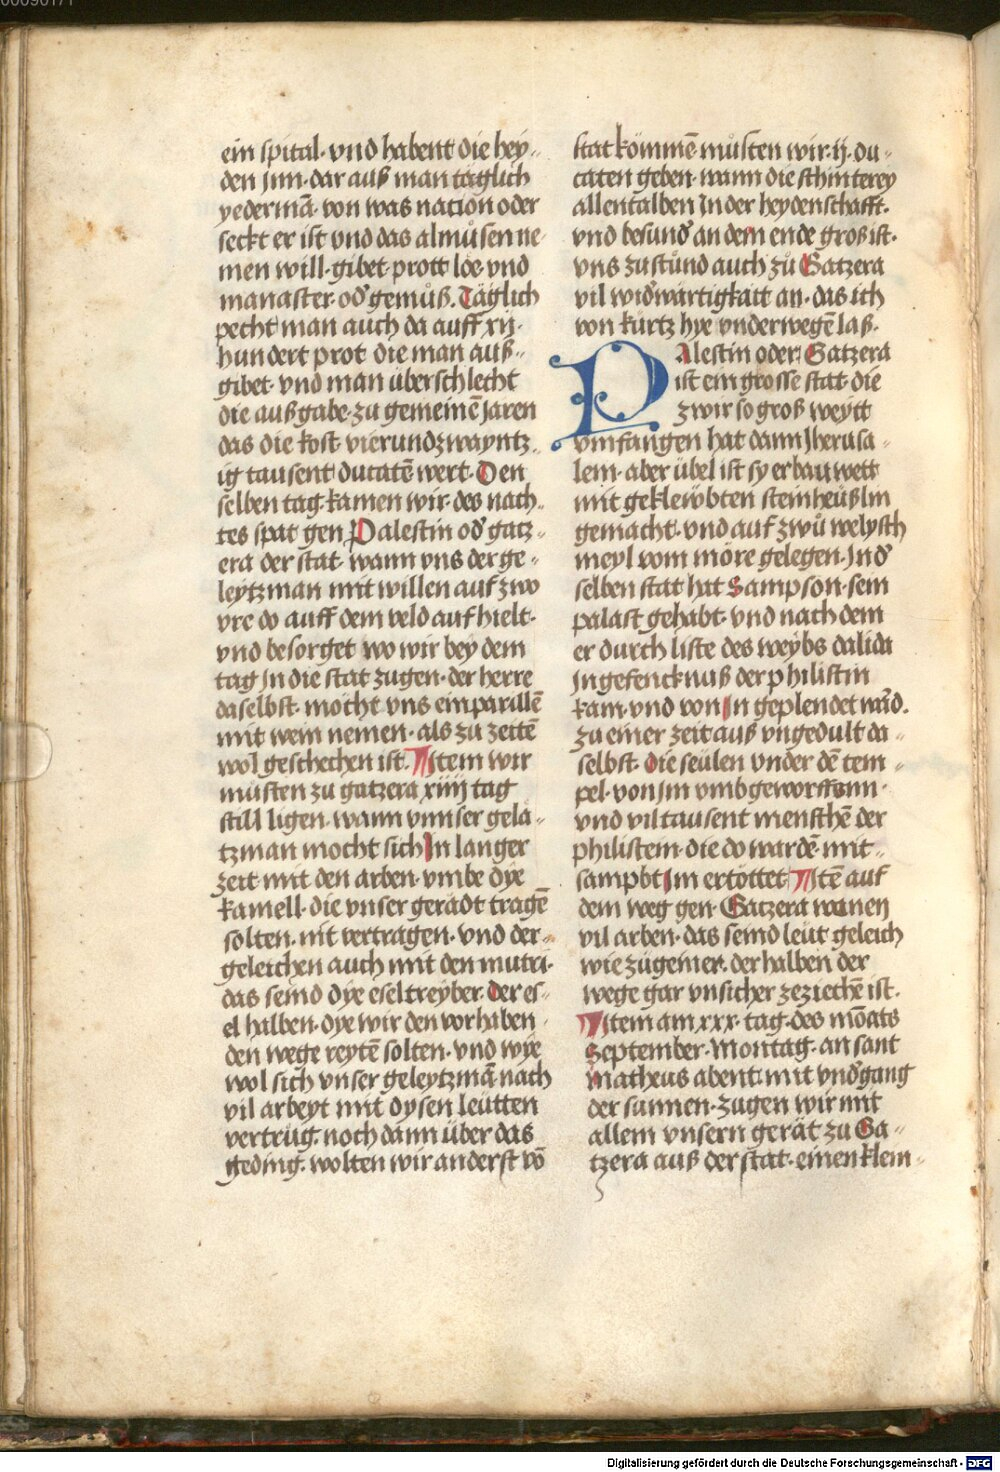 ein spital· vnd habent die hey-
den jnn· dar auß man täglich
yedermā· von was nation oder
seckt er ist vnd das almůsen ne-
men will· gibet· prott loe· vnd
manaster· od' gemůß. Täglich
pecht man auch da auff xij·
hundert prot die man auß-
gibet· vnd man überschlecht
die außgabe· zu gemeinē jaren
das die kost vierundzwayntz-
ig tausent ducatē wert· Den
selben tag· kamen wir· des nach-
tes spat gen Palestin od' gatz-
era der stat· wann vns der ge-
leytzman mit willen auf zwo
vre do auff dem veld auf hielt·
vnd besorget wo wir bey dem
tag jn die stat zugen· der herre
daselbst· möcht vns ein parillē
mit wein nemen· als zu zeitē
wol geschechen ist· Item wir
můsten zu gatzera xiiij tag
still ligen· wann vnnser gelä-
tzman mocht sich In langer
zeit mit den arben· vmbe dye
kamell· die vnser gerädt tragē
solten· nit vertragen· vnd der-
geleichen auch mit den mutri·
das seind dye eseltreyber· der es-
el halben· dye wir den vorhaben
den wege reytē solten· vnd wye
wol sich vnser geleytzmā nach
vil arbeyt mit dysen leütten
vertrůg· noch dann über das
geding· wolten wir anderst vō
stat kömmē můsten wir· ij· du-
caten geben· wann die schinterey
allentalben In der heydenschafft·
vnd besund' an dem ende groß ist·
vns zustůnd auch zů Gatzera
vil wid'wärtigkait an· das ich
von kurtz hye vnderwegē laß·
Palestin oder Gatzera
ist ein grosse stat· die
zwir so groß weytt
vmfangen hat dann Jherusa-
lem· aber übel ist sy erbauwett
mit geklewbten steinheüßlin
gemacht· vnd auf zwů welysch
meyl vom möre gelegen· In d'
selben stat hat Sampson· sein
palast gehabt· vnd nach dem
er durch liste des weybs dalida
jn gefencknuß der philistin
kam· vnd von Jn geplendet ward.
zu einer zeit auß vngedult da-
selbst· die seülen vnder dē tem-
pel· von jm vmbgeworffenn·
vnd vil tausent menschē der
philistein· die do wardē· mit-
sampbt Im ertöttet Itē auf
dem weg gen· Gatzera wanen
vil arben· das seind leüt geleich
wie zügeiner· der halben der
wege gar vnsicher zeziechē ist·
Item am xxx· tag· des mōats
September· Montag· an sant
Matheus abent· mit vnd'gang
der sunnen· zugen wir mit
allem vnsern gerät zu Ga-
tzera auß der stat· einen klein-
Digitalisierung gefördert durch die Deutsche Forschungsgemeinschaft - DFG